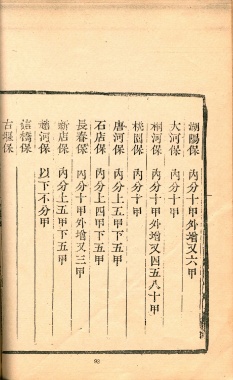 湖陽保 內分十甲外增又六甲
大河保 內分十甲
桐河保 內分十甲外增又四五八十甲
桃園保 內分十甲
唐河保 內分上五甲下五甲
石店保 內分上四甲下五甲
長春保 內分十甲外增又三甲
新店保 內分上五甲下五甲
趙河保 以下不分甲
橋保
古堰保
92